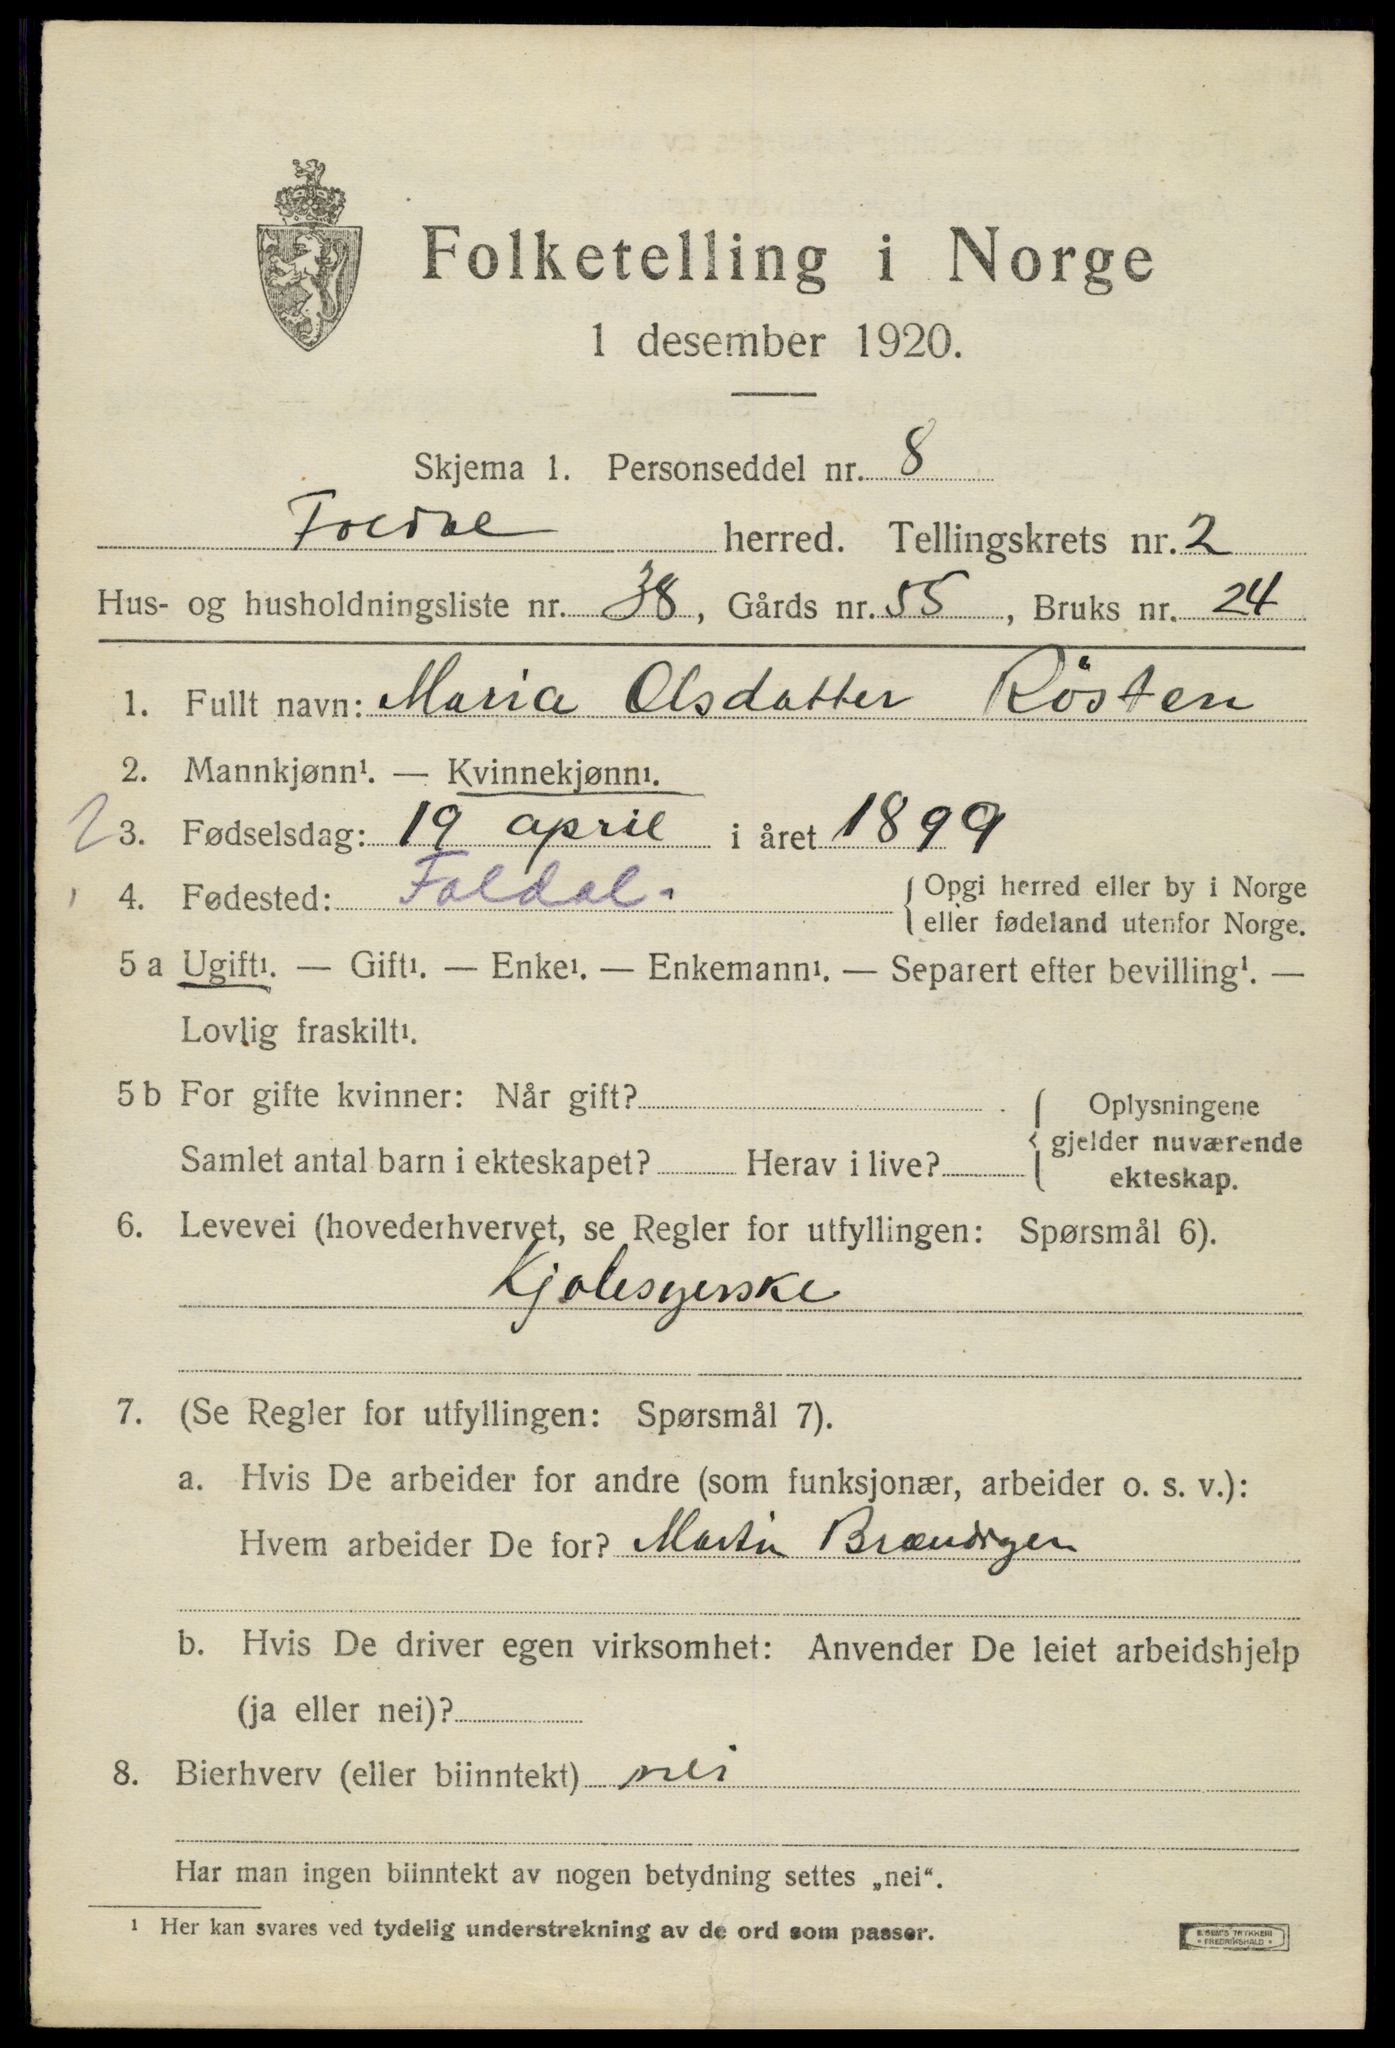 Folketelling i Norge
1 desember 1920.
Skjema 1. Personseddel nr. 8
Foldal herred. Tellingskrets nr. 2
Hus- og husholdningsliste nr. 38, Gårds nr. 55, Bruks nr. 24
1. Fullt navn: Maria Olsdatter Rösten
2. Mannkjønn¹. — Kvinnekjønn¹.
3. Fødselsdag: 19 april i året 1899
4. Fødested: Foldal. { Opgi herred eller by i Norge
eller fødeland utenfor Norge.
5 a Ugift¹. — Gift¹. — Enke¹. — Enkemann¹. — Separert efter bevilling¹. —
Lovlig fraskilt¹.
5 b For gifte kvinner: Når gift? { Oplysningene
gjelder nuværende
Samlet antal barn i ekteskapet? Herav i live? ekteskap.
6. Levevei (hovederhvervet, se Regler for utfyllingen: Spørsmål 6).
Kjolesyerske
7. (Se Regler for utfyllingen: Spørsmål 7).
a. Hvis De arbeider for andre (som funksjonær, arbeider o. s. v.):
Hvem arbeider De for? Martin Brændgen
b. Hvis De driver egen virksomhet: Anvender De leiet arbeidshjelp
(ja eller nei)?
8. Bierhverv (eller biinntekt) nei
Har man ingen biinntekt av nogen betydning settes „nei“.
¹ Her kan svares ved tydelig understrekning av de ord som passer.
E. SEM'S TRYKKERI
• FREDRIKSHALD •